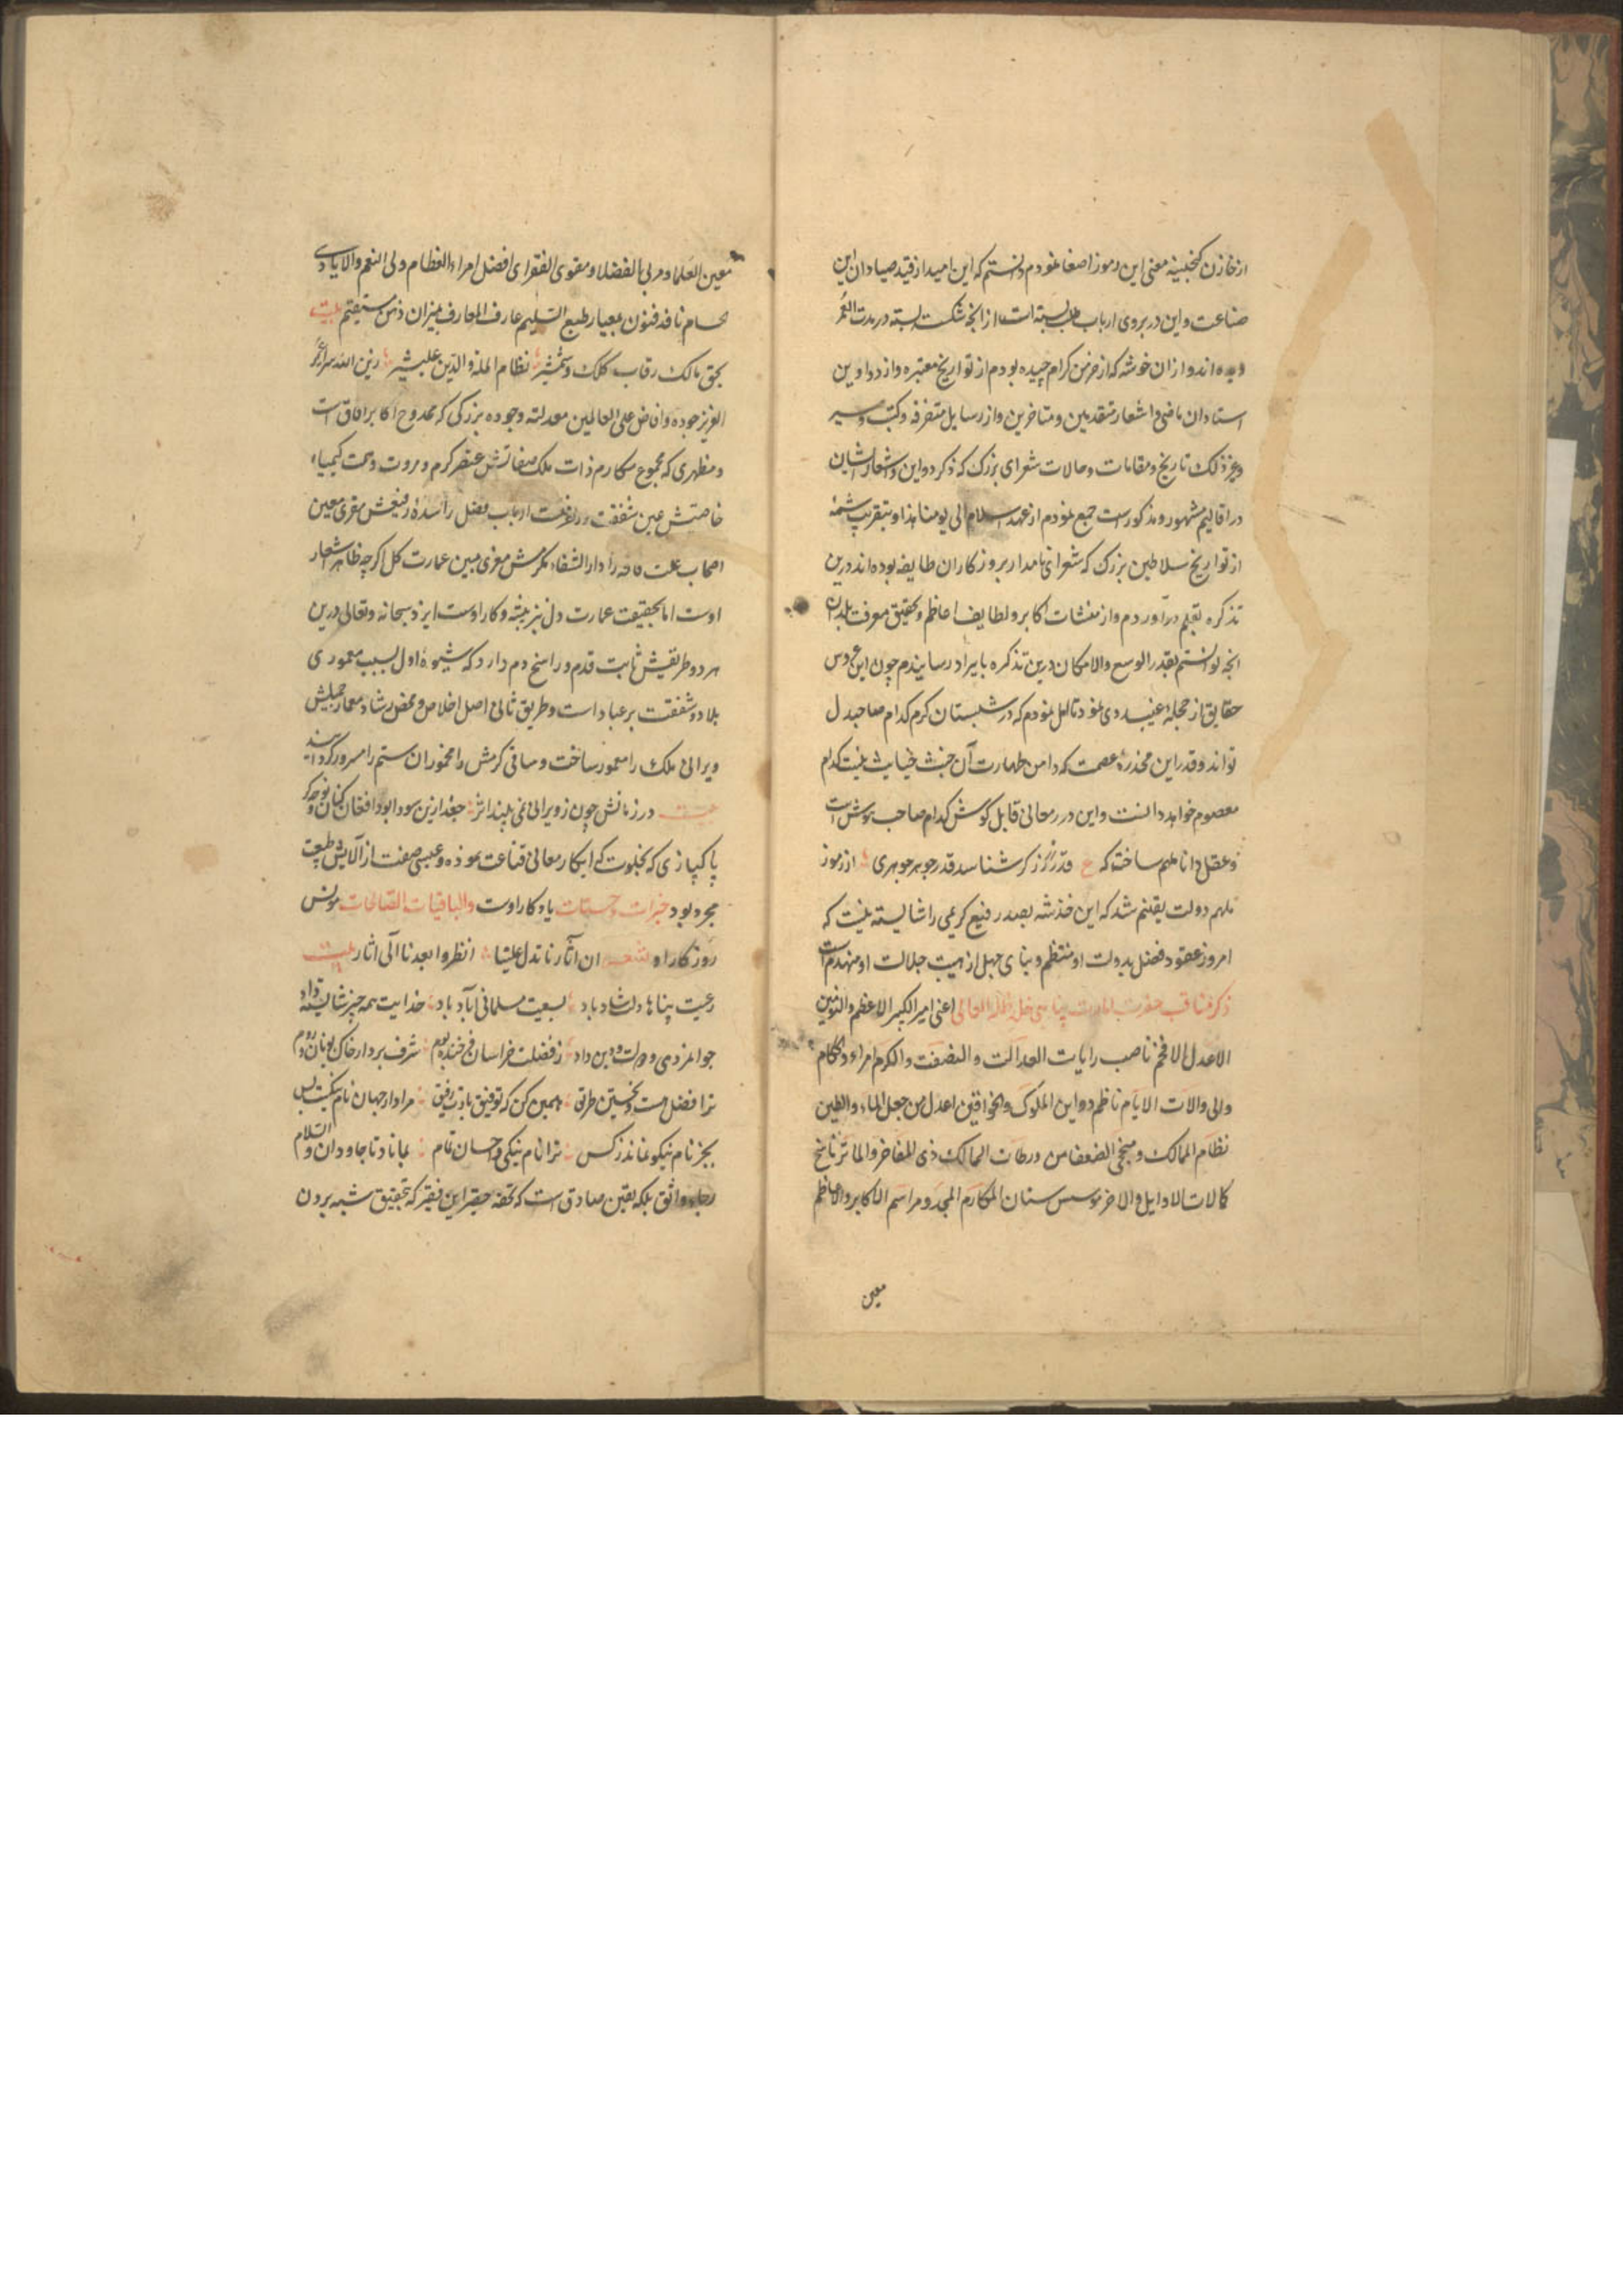 از خازن گنجینه معنی این رموز اصغا نمودم دانستم که این امید از قید صیادان این
صناعت و این در بروی ارباب طلب بسته است از آنچه شکسته بسته در مدت العمر
دیده اند و از ان خوشه که از خرمن کرام چیده بودم از تواریخ معتبره و از دواوین
استادان ماضی و اشعار متقدمین و متاخرین و از رسایل متفرقه و کتب و سیر
و غیر ذلک تاریخ و مقامات و حالات شعرای بزرک که ذکر دواوین و اشعار ایشان
در اقالیم مشهور و مذکورست جمع نمودم از عهد اسلام الی یومنا هذا و بتقریب شمه
از تواریخ سلاطین بزرک که شعرای نامدار بروزکاران طایفه بوده اند درین
تذکره بقلم درآوردم و از منشات اکابر و لطایف اعاظم و تحقیق معرفت بلدان
انچه توانستم بقدر الوسع والامکان درین تذکره بایراد رسانیدم چون این عروس
حقایق از حجله غیب روی نمود تامل نمودم که در شبستان کرم کدام صاحبدل
تواند و قدر این مخدره عصمت که دامن طهارت آن خبث خیانت نیست کدام
معصوم خواهد دانست و این درر معانی قابل گوش کدام صاحب هوش است
و عقل دانا ملهم ساخت که ع قدر زر زرکر شناسد قدر جوهر جوهری از رموز
ملهم دولت یقینم شد که این خدشه بصدر رفیع کریمی را شایسته نیست که
امروز عقود فضل بدولت او منتظم و بنای جهل از هیبت جلالت او منهدم است
ذکر مناقب حضرت امارت پناهی خلد ظله العالی اعنی امیر الکبیر الاعظم والنوئین
الاعدل الافخم ناصب رایات العدالت والنصفت والکرم امراء و الحکام
والی والات الایام ناظم دواوین الملوک والخواقین اعدل من جعل الماء والطین
نظام الممالک و منجی الضعفا من ورطات المهالک ذی المفاخر والماثر ناسخ
کمالات الاوایل والاخر موسس سنان المکارم المجد و مراسم الاکابر والاعاظم
معین
معین العلما و مربی الفضلا و مقوی الفقرا افضل امراء العظام ولی النعم والایادی
حسام نافد فنون بمعیار طبع السلیم عارف المعارف بمیزان ذهن مستقیم بیت
بحق مالک رقاب کلک و شمشیر نظام المله والدین علیشیر زین الله سرایر
العزیز جوده وافاض علی العالمین معدلته وجوده بزرکی که ممدوح اکابر افاق است
و مظهری که مجموع مکارم ذات ملک صفاتش عنصر کرم و مروت و همت کیمیاء
خاصیتش عین شفقت و رافت ارباب فضل را سده رفیعش مقری معین
اصحاب علت فاقه را دار الشفاء مکرمش مغزی مبین عمارت کل اگرچه ظاهر شعار
اوست اما بحقیقت عمارت دل نیز پیشه و کار اوست ایزد سبحانه و تعالی درین
هر دو طریقش ثابت قدم و راسخ دم دارد که شیوه اول بسبب معموری
بلاد و شفقت بر عباد است و طریق ثانی اصل اخلاص و محض رشاد معمار جمیلش
ویرانی ملک را معمور ساخت و ساقی کرمش را مخموران ستم را مسرور کردانید
بیت در زمانش چون ز ویرانی نمی بیند اثر جغد ازین سودا بود افغان کنان نوحه گر
پاکبازی که بخلوت که ابکار معانی قناعت نموده و عیسی صفت از آلایش طبیعت
مجرد بود خیرات و حسنات یاد کار اوست والباقیات الصالحات مونس
روزکار او شعر ان آثارنا تدل علینا انظروا بعدنا الی اثار بیت
رعیت پناها دلت شاد باد بسعیت مسلمانی آباد باد خدایت همه چیز شایسته داد
جوانمردی و دولت و دین داد ز فضلت خراسان فرخنده بوم شرف بر دار خاک یونان و روم
ترا فضل هست و تحسین طراق همین کن که توفیق بادت رفیق مراد از جهان نام نیکست بس
بجز نام نیکو نماند ز کس ترا نام نیکی و احسان تمام بماناد تا جاودان والسلام
رجاء واثق بلکه یقین صادق است که تحفه حقیر این فقیر که بتحقیق شبه برون